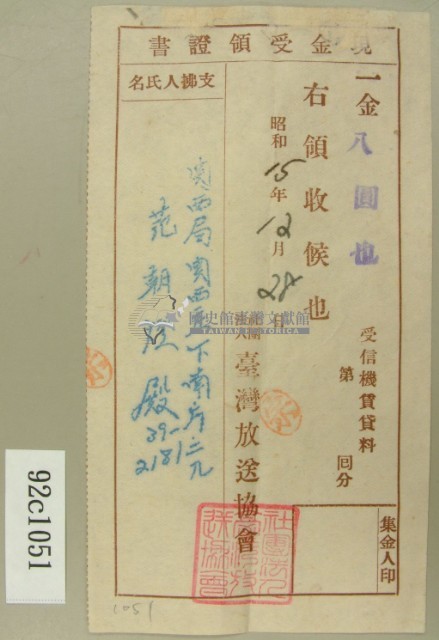 現金受領證書
一金八圓也
受信機賃貸料
第 回分
右領收候也
昭和15年12月28日
社團法人臺灣放送協會
集金人印
支拂人氏名
関西局関西庄下南片三九
范朝 殿
39-
2181
社團法人臺灣放送協會
國史館臺灣文獻館
TAIWAN HISTORICA
92c1051
1051